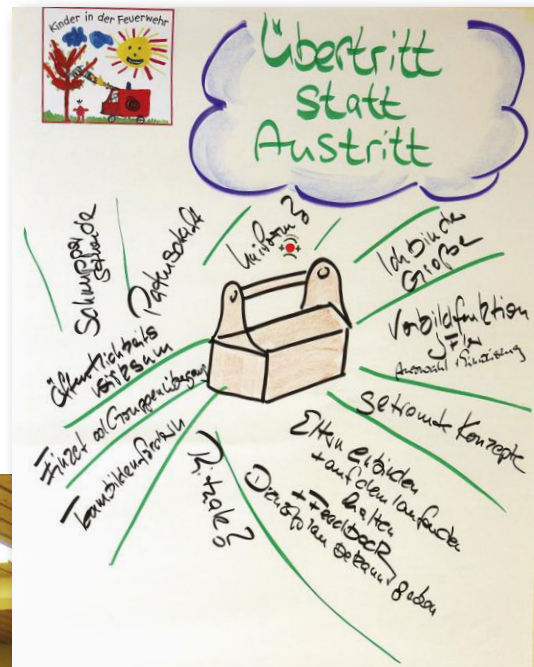 Kinder in der Feuerwehr
Übertritt
Statt
Austritt
Schnupper
stunde
Patenschaft
Uniform?
Ich bin der
Große
Vorbildfunktion
Auswahl
getrennte Konzepte
Eltern einbinden
+ auf dem laufenden
halten
+ Feedback
Dienstplan bekannt geben
Rituale?
Teambilden fördern
Einzel od Gruppenübergang
Öffentlichkeits
wirksam